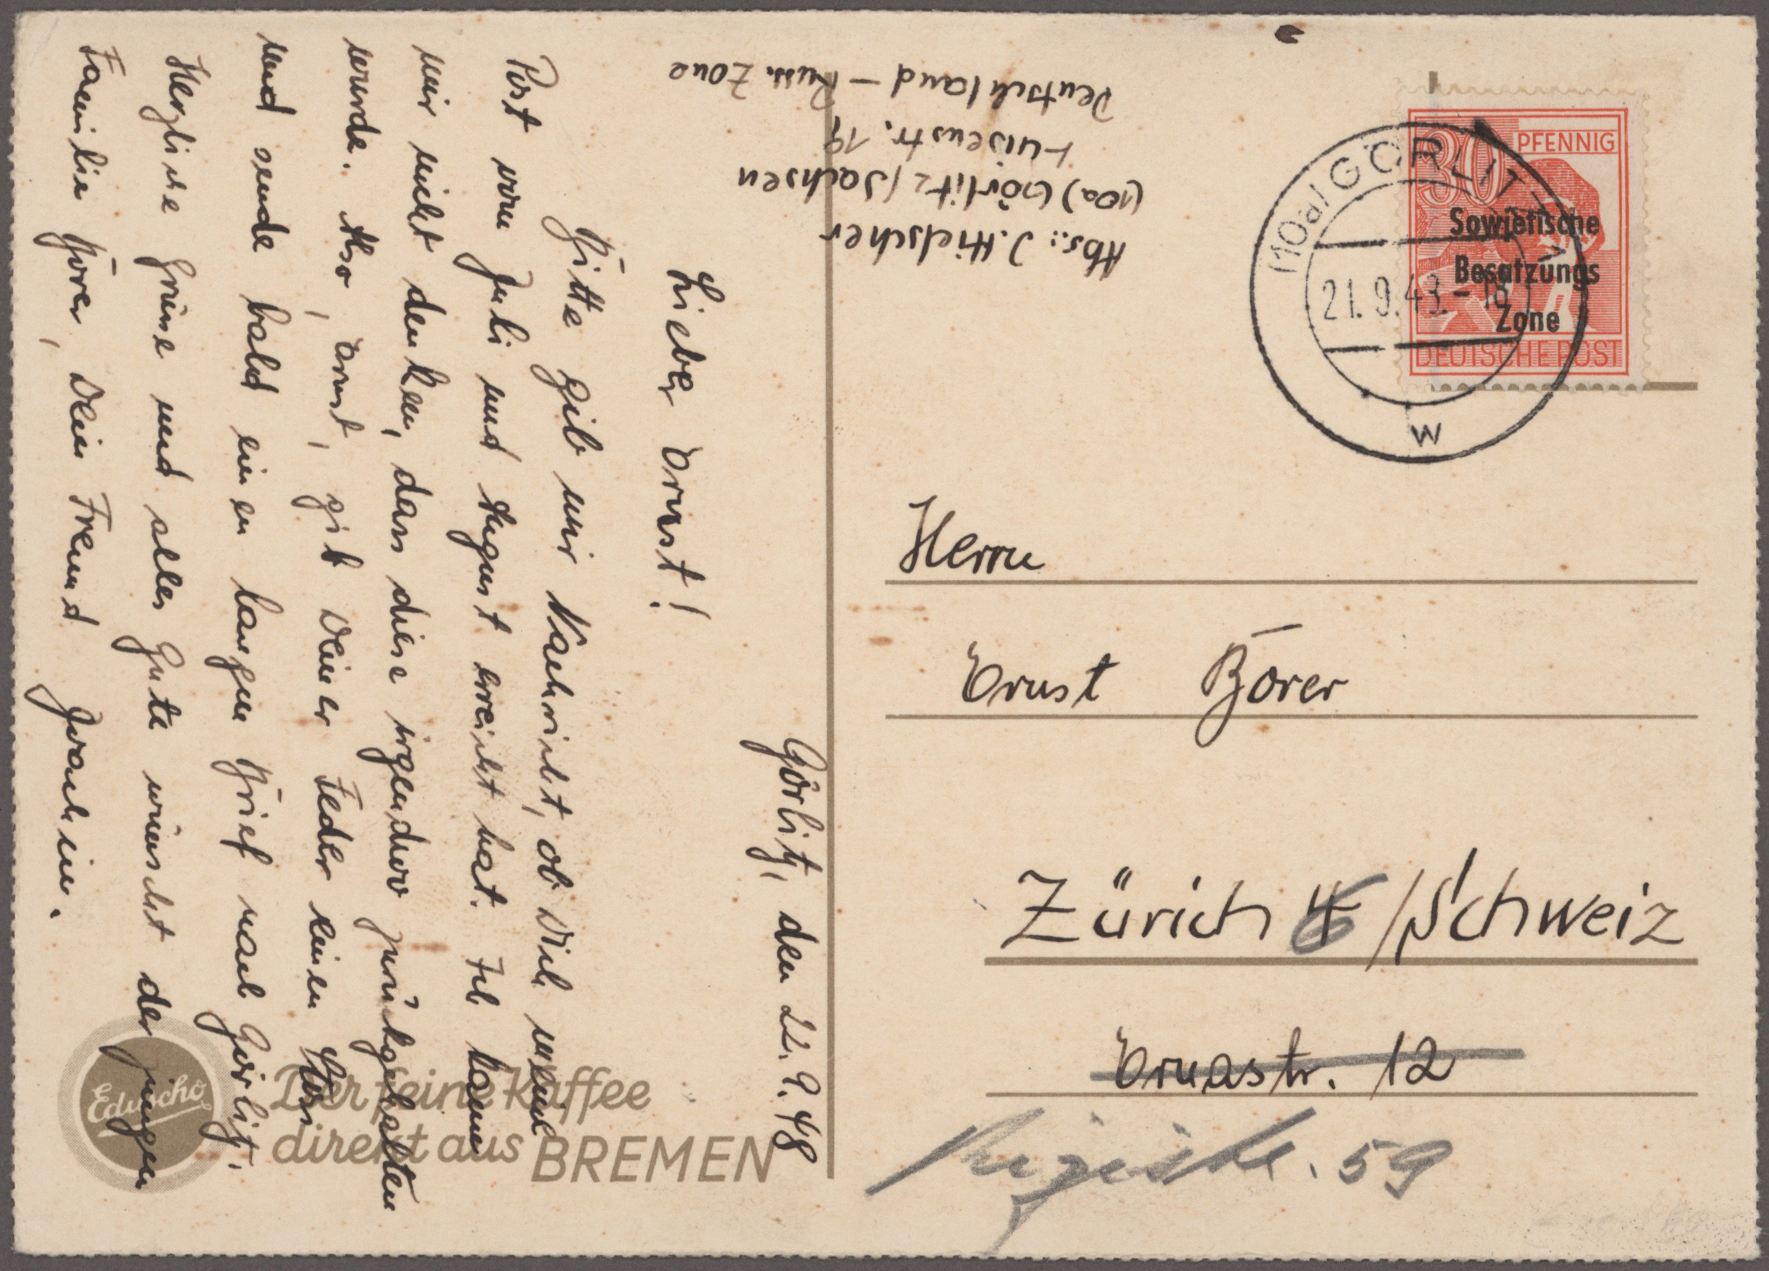 Görlitz, den 22. 9. 48
Lieber Ernst!
Bitte gib mir Nachricht, ob Dich meine
Post vom Juli und August erreicht hat. Ich kann
mir nicht denken, dass diese irgendwo zurückgehalten
wurde. Also, Ernst, gib Deiner Feder einen Stoss
und sende bald einen langen Brief nach Görlitz.
Herzliche Grüsse und alles Gute wünscht der jungen
Familie Borer, Dein Freund Joachim.
Abs.: J. Hielscher
(10a) Görlitz/Sachsen
Luisenstr. 19
Deutschland – Russ. Zone
30 PFENNIG
DEUTSCHE POST
Sowjetische
Besatzungs
Zone
(10a) GÖRLITZ
21.9.48.-18
w
Herrn
Ernst Borer
Zürich 6 /Schweiz
Ernastr. 12
59
Eduscho
Der feine Kaffee
direkt aus BREMEN